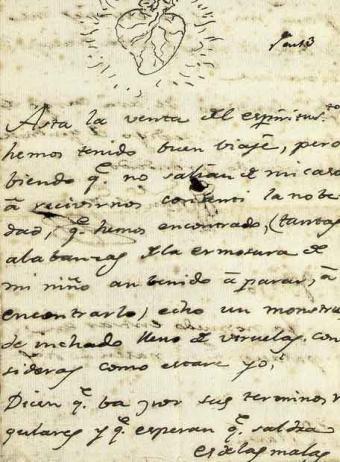 Asta la venta del espiritu sto
hemos tenido buen viaje, pero
biendo q.e no salian de mi casa
â recivirnos conosenti la nobe
dad, q.e hemos encontrado, (tantas
alabanzas d la ermosura de
mi niño an benido â parar, â
encontrarlo) echo un monstruo
de inchado lleno de viruelas. con
sideras como estare yo,
Dicen q.e ba por sus terminos, r
gulares y q.e esperan q.e saldra
es de las malas